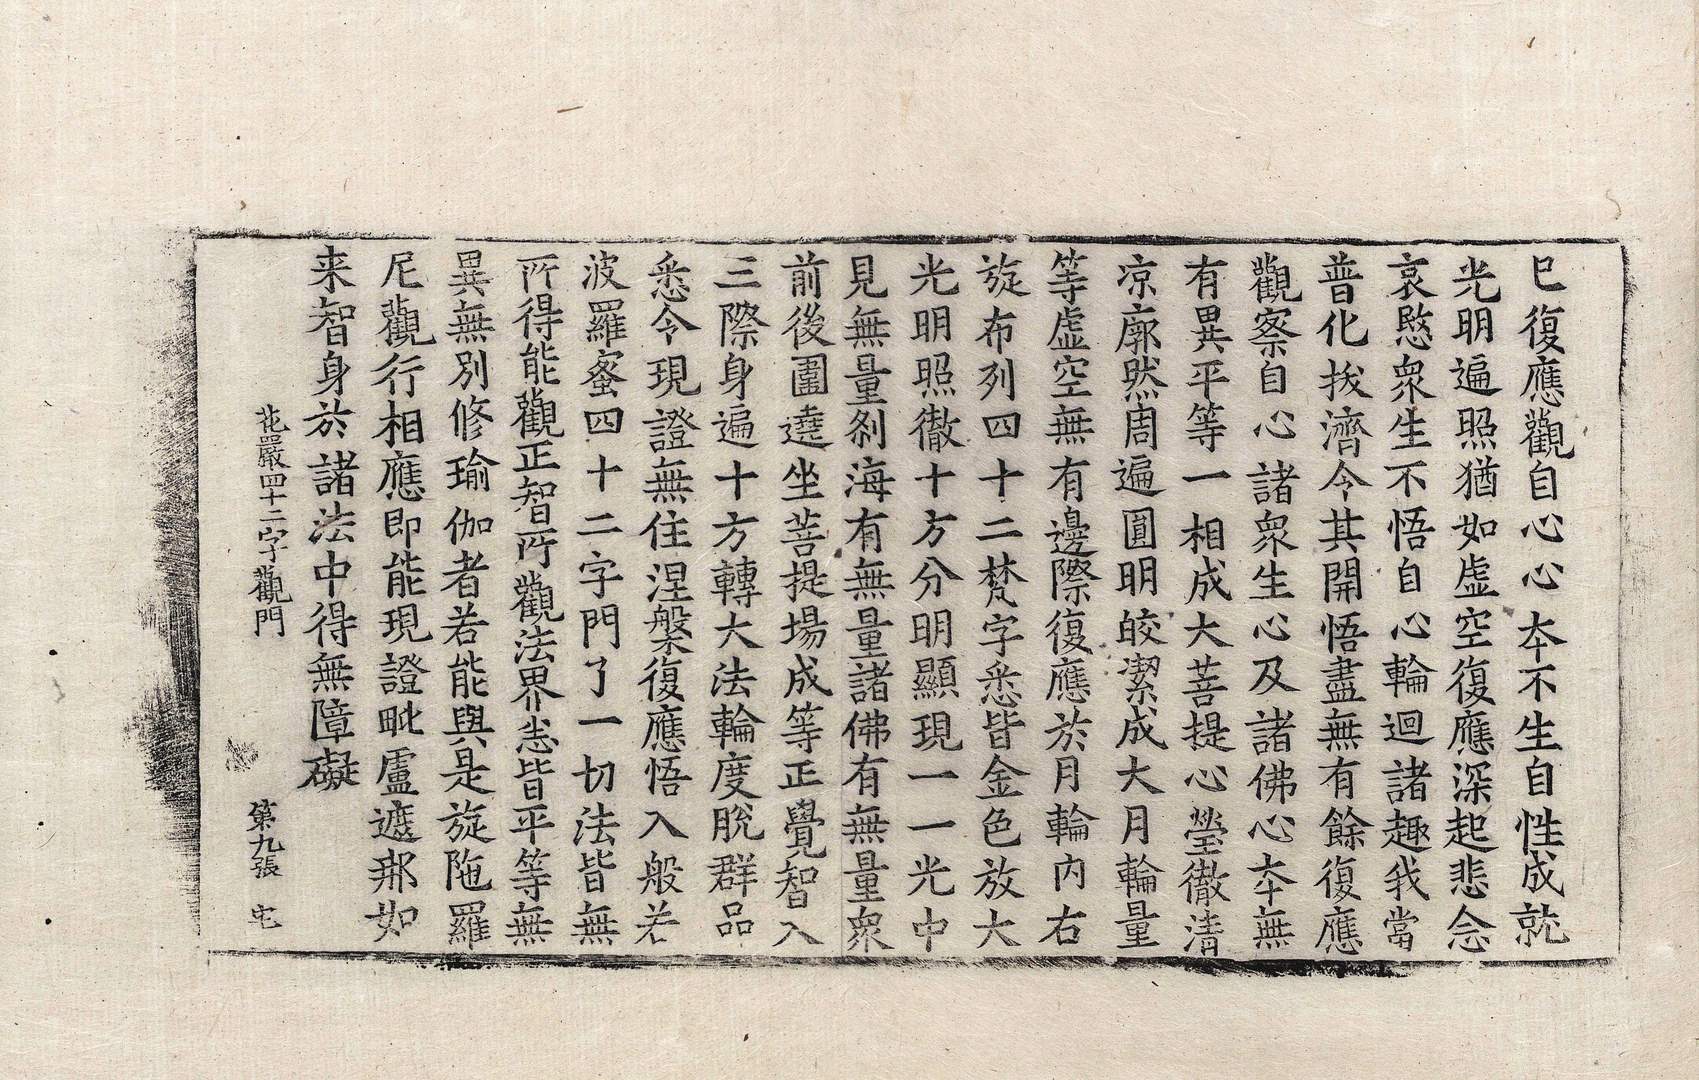 已復應觀自心心夲不生自性成就
光明遍照猶如虛空復應深起悲念
哀愍衆生不悟自心輪迴諸趣我當
普化拔濟令其開悟盡無有餘復應
觀察自心諸衆生心及諸佛心夲無
有異平等一相成大菩提心瑩徹清
凉廓然周遍圓明皎潔成大月輪量
等虛空無有邊際復應於月輪內右
旋布列四十二梵字悉皆金色放大
光明照徹十方分明顯現一一光中
見無量刹海有無量諸佛有無量衆
前後圍遶坐菩提場成等正覺智入
三際身遍十方轉大法輪度脫群品
悉令現證無住涅槃復應悟入般若
波羅蜜四十二字門了一切法皆無
所得能觀正智所觀法界悉皆平等無
異無別修瑜伽者若能與是旋陁羅
尼觀行相應即能現證毗盧遮那如
来智身於諸法中得無障礙
花嚴四十二字觀門 第九張 宅